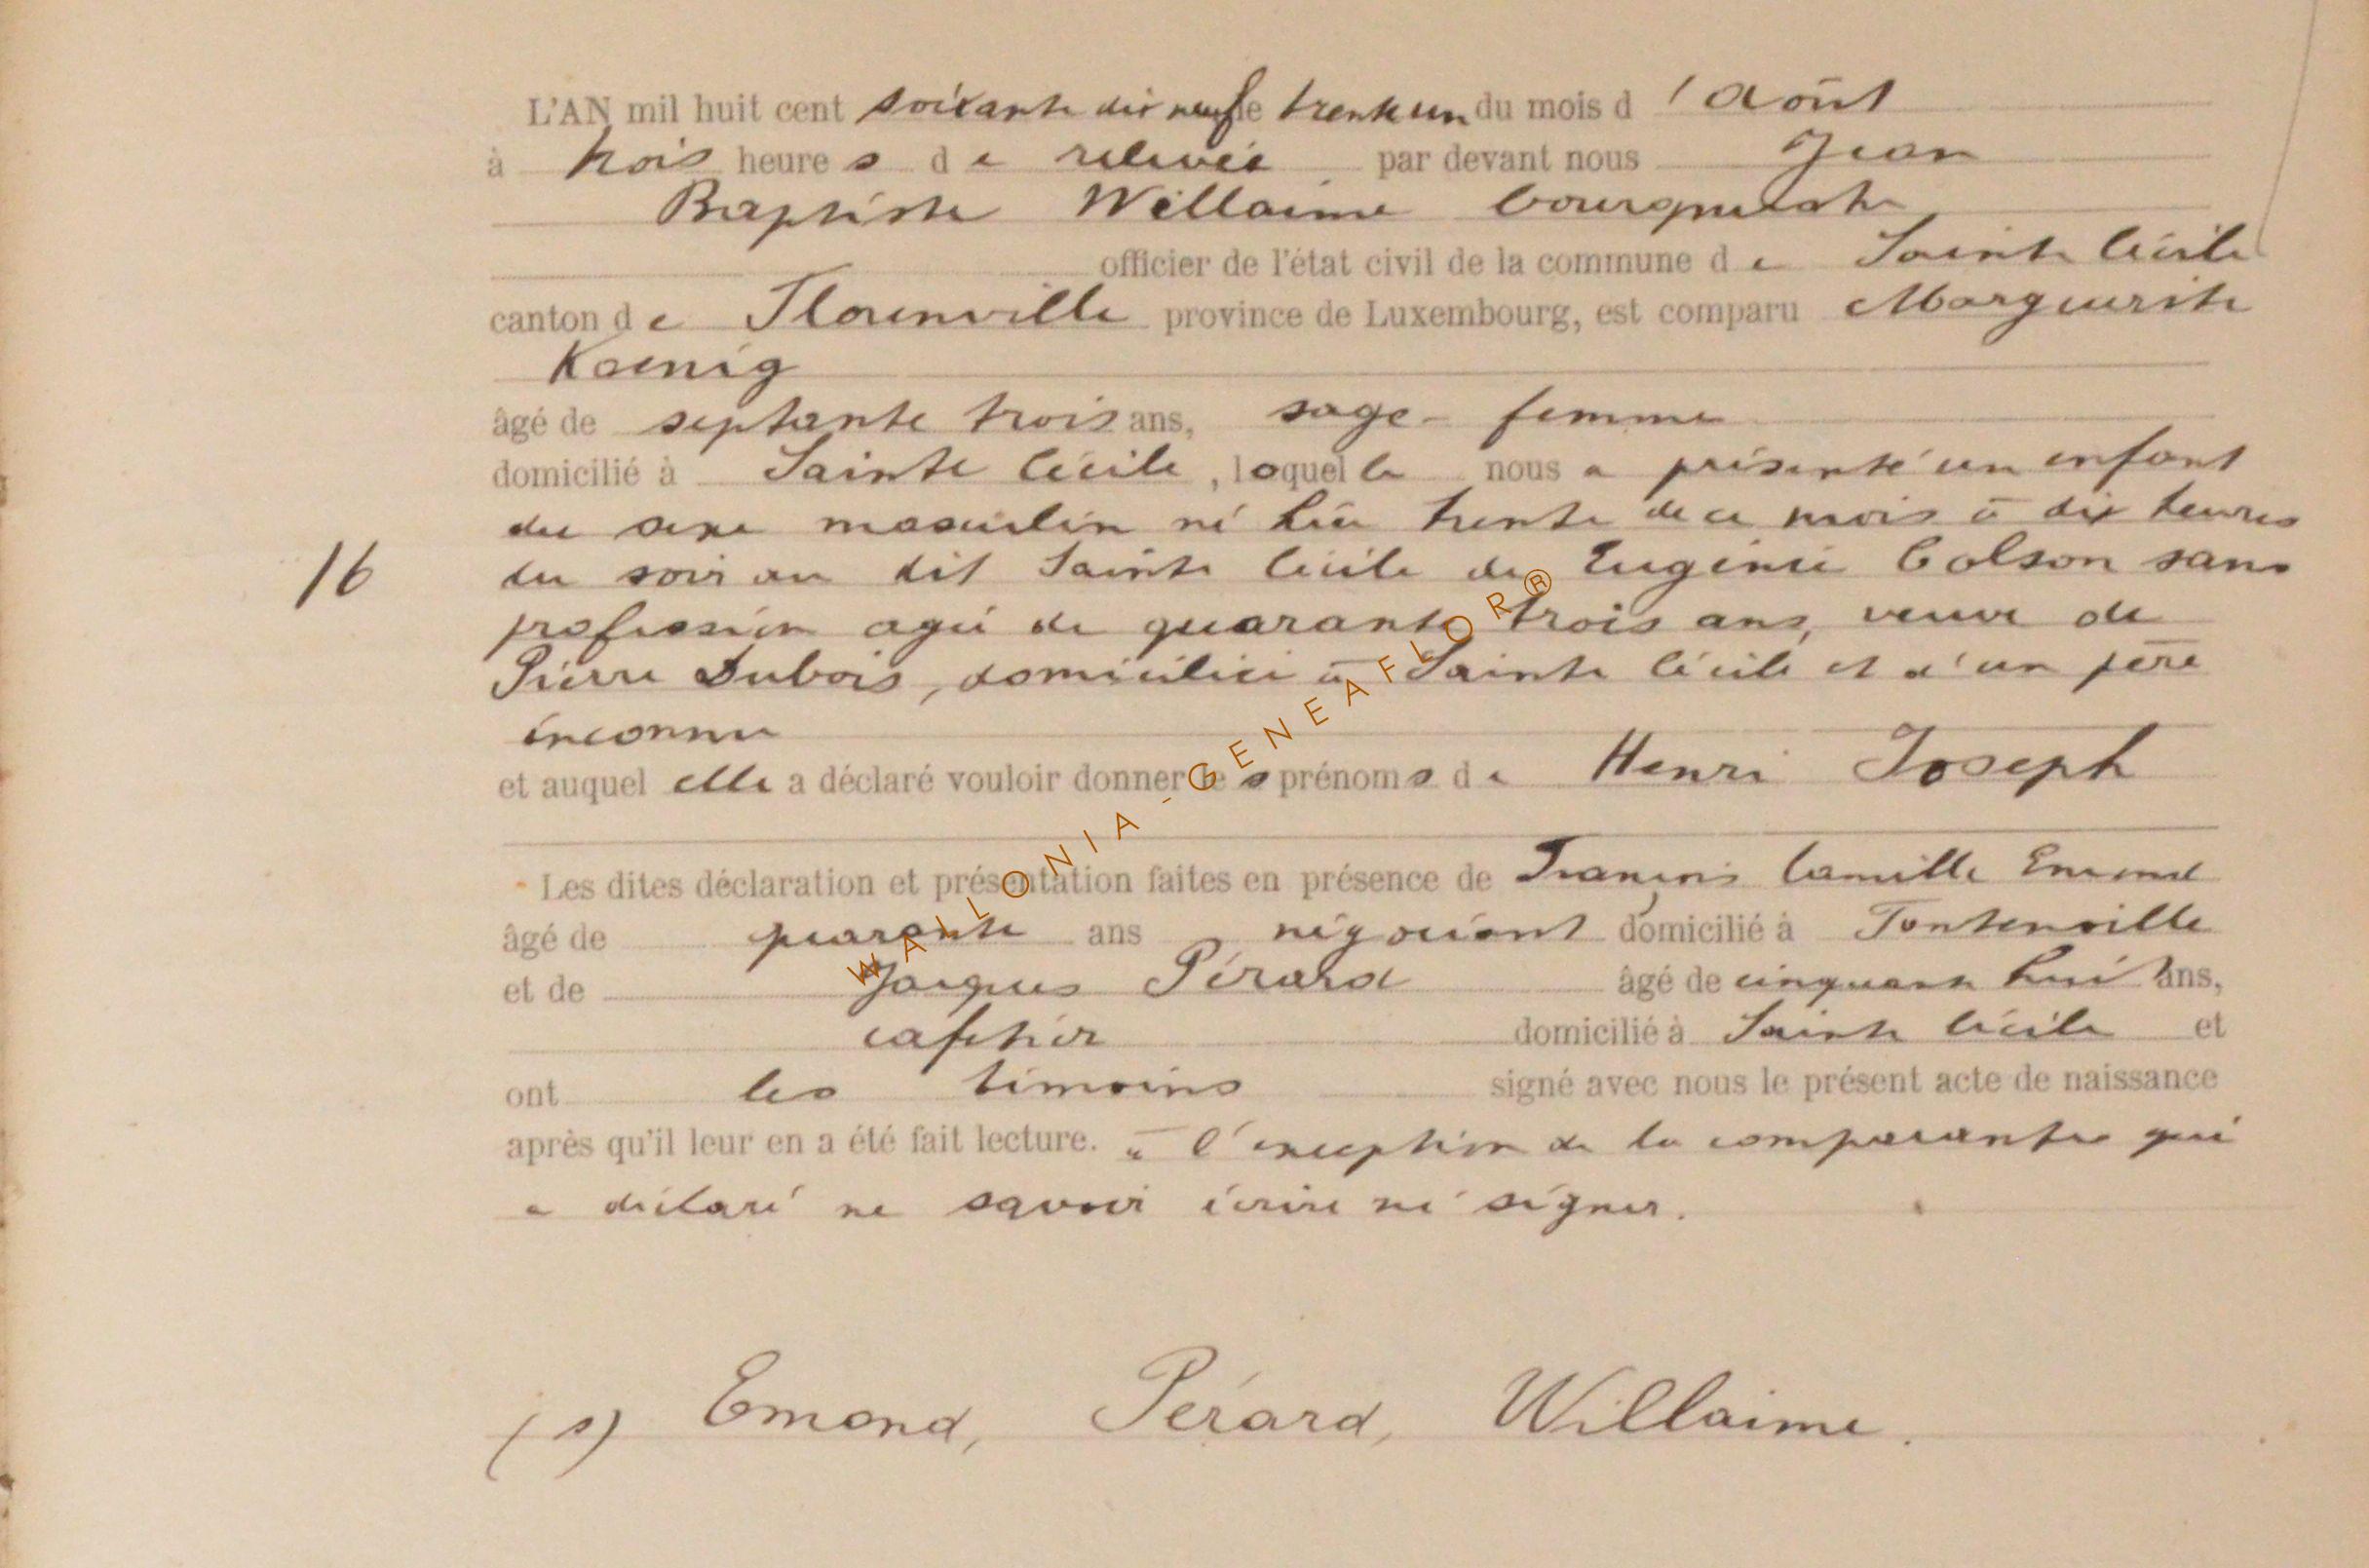 L'AN mil huit cent soixante dix neuf le trente un du mois d'Août
à trois heures de relevée par devant nous Jean
Baptiste Willaime bourgmestre
officier de l'état civil de la commune de Sainte Cécile
canton de Florenville province de Luxembourg, est comparu Marguerite
Koenig
âgé de septante trois ans, sage-femme
domicilié à Sainte Cécile, laquelle nous a présenté un enfant
du sexe masculin né hier trente de ce mois à dix heures
du soir au dit Sainte Cécile de Eugénie Colson sans
profession agée de quarante trois ans, veuve de
Pierre Dubois, domiciliée à Sainte Cécile et d'un père
inconnu
et auquel elle a déclaré vouloir donner les prénoms de Henri Joseph
Les dites déclaration et présentation faites en présence de François Camille Emond
âgé de quarante ans négociant domicilié à Fontenoille
et de Jacques Pérard âgé de cinquante huit ans,
cafetier domicilié à Sainte Cécile et
ont les témoins signé avec nous le présent acte de naissance
16
après qu'il leur en a été fait lecture. à l'exception de la comparante qui
a déclaré ne savoir écrire ni signer.
(s) Emond, Pérard, Willaime.
WALLONIA-GENEAFLOR®